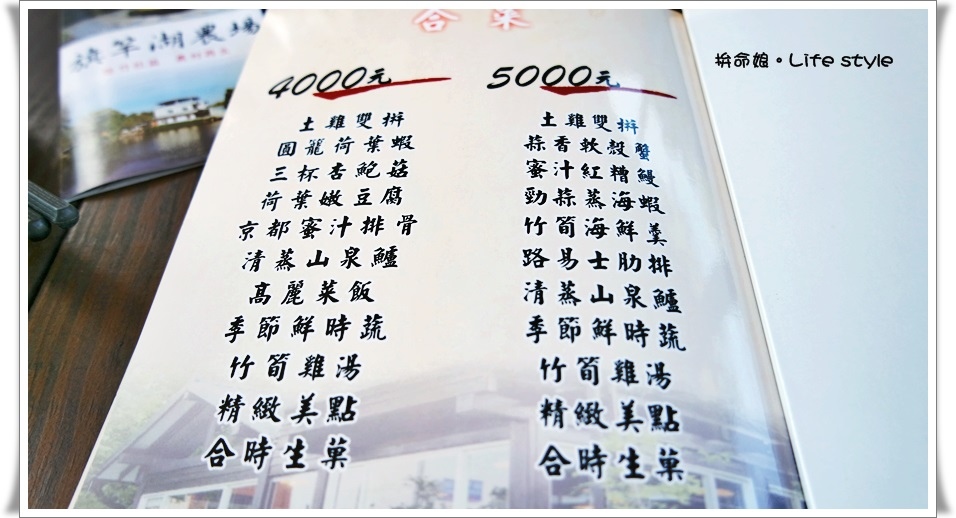 旗竿湖農場
合菜
4000元
土雞雙拼
圓籠荷葉蝦
三杯杏鮑菇
荷葉嫩豆腐
京都蜜汁排骨
清蒸山泉鱸
高麗菜飯
季節鮮時蔬
竹筍雞湯
精緻美點
合時生菓
5000元
土雞雙拼
蒜香軟殼蟹
蜜汁紅糟鰻
勁蒜蒸海蝦
竹筍海鮮羹
路易士肋排
清蒸山泉鱸
季節鮮時蔬
竹筍雞湯
精緻美點
合時生菓
拚命娘。Life style